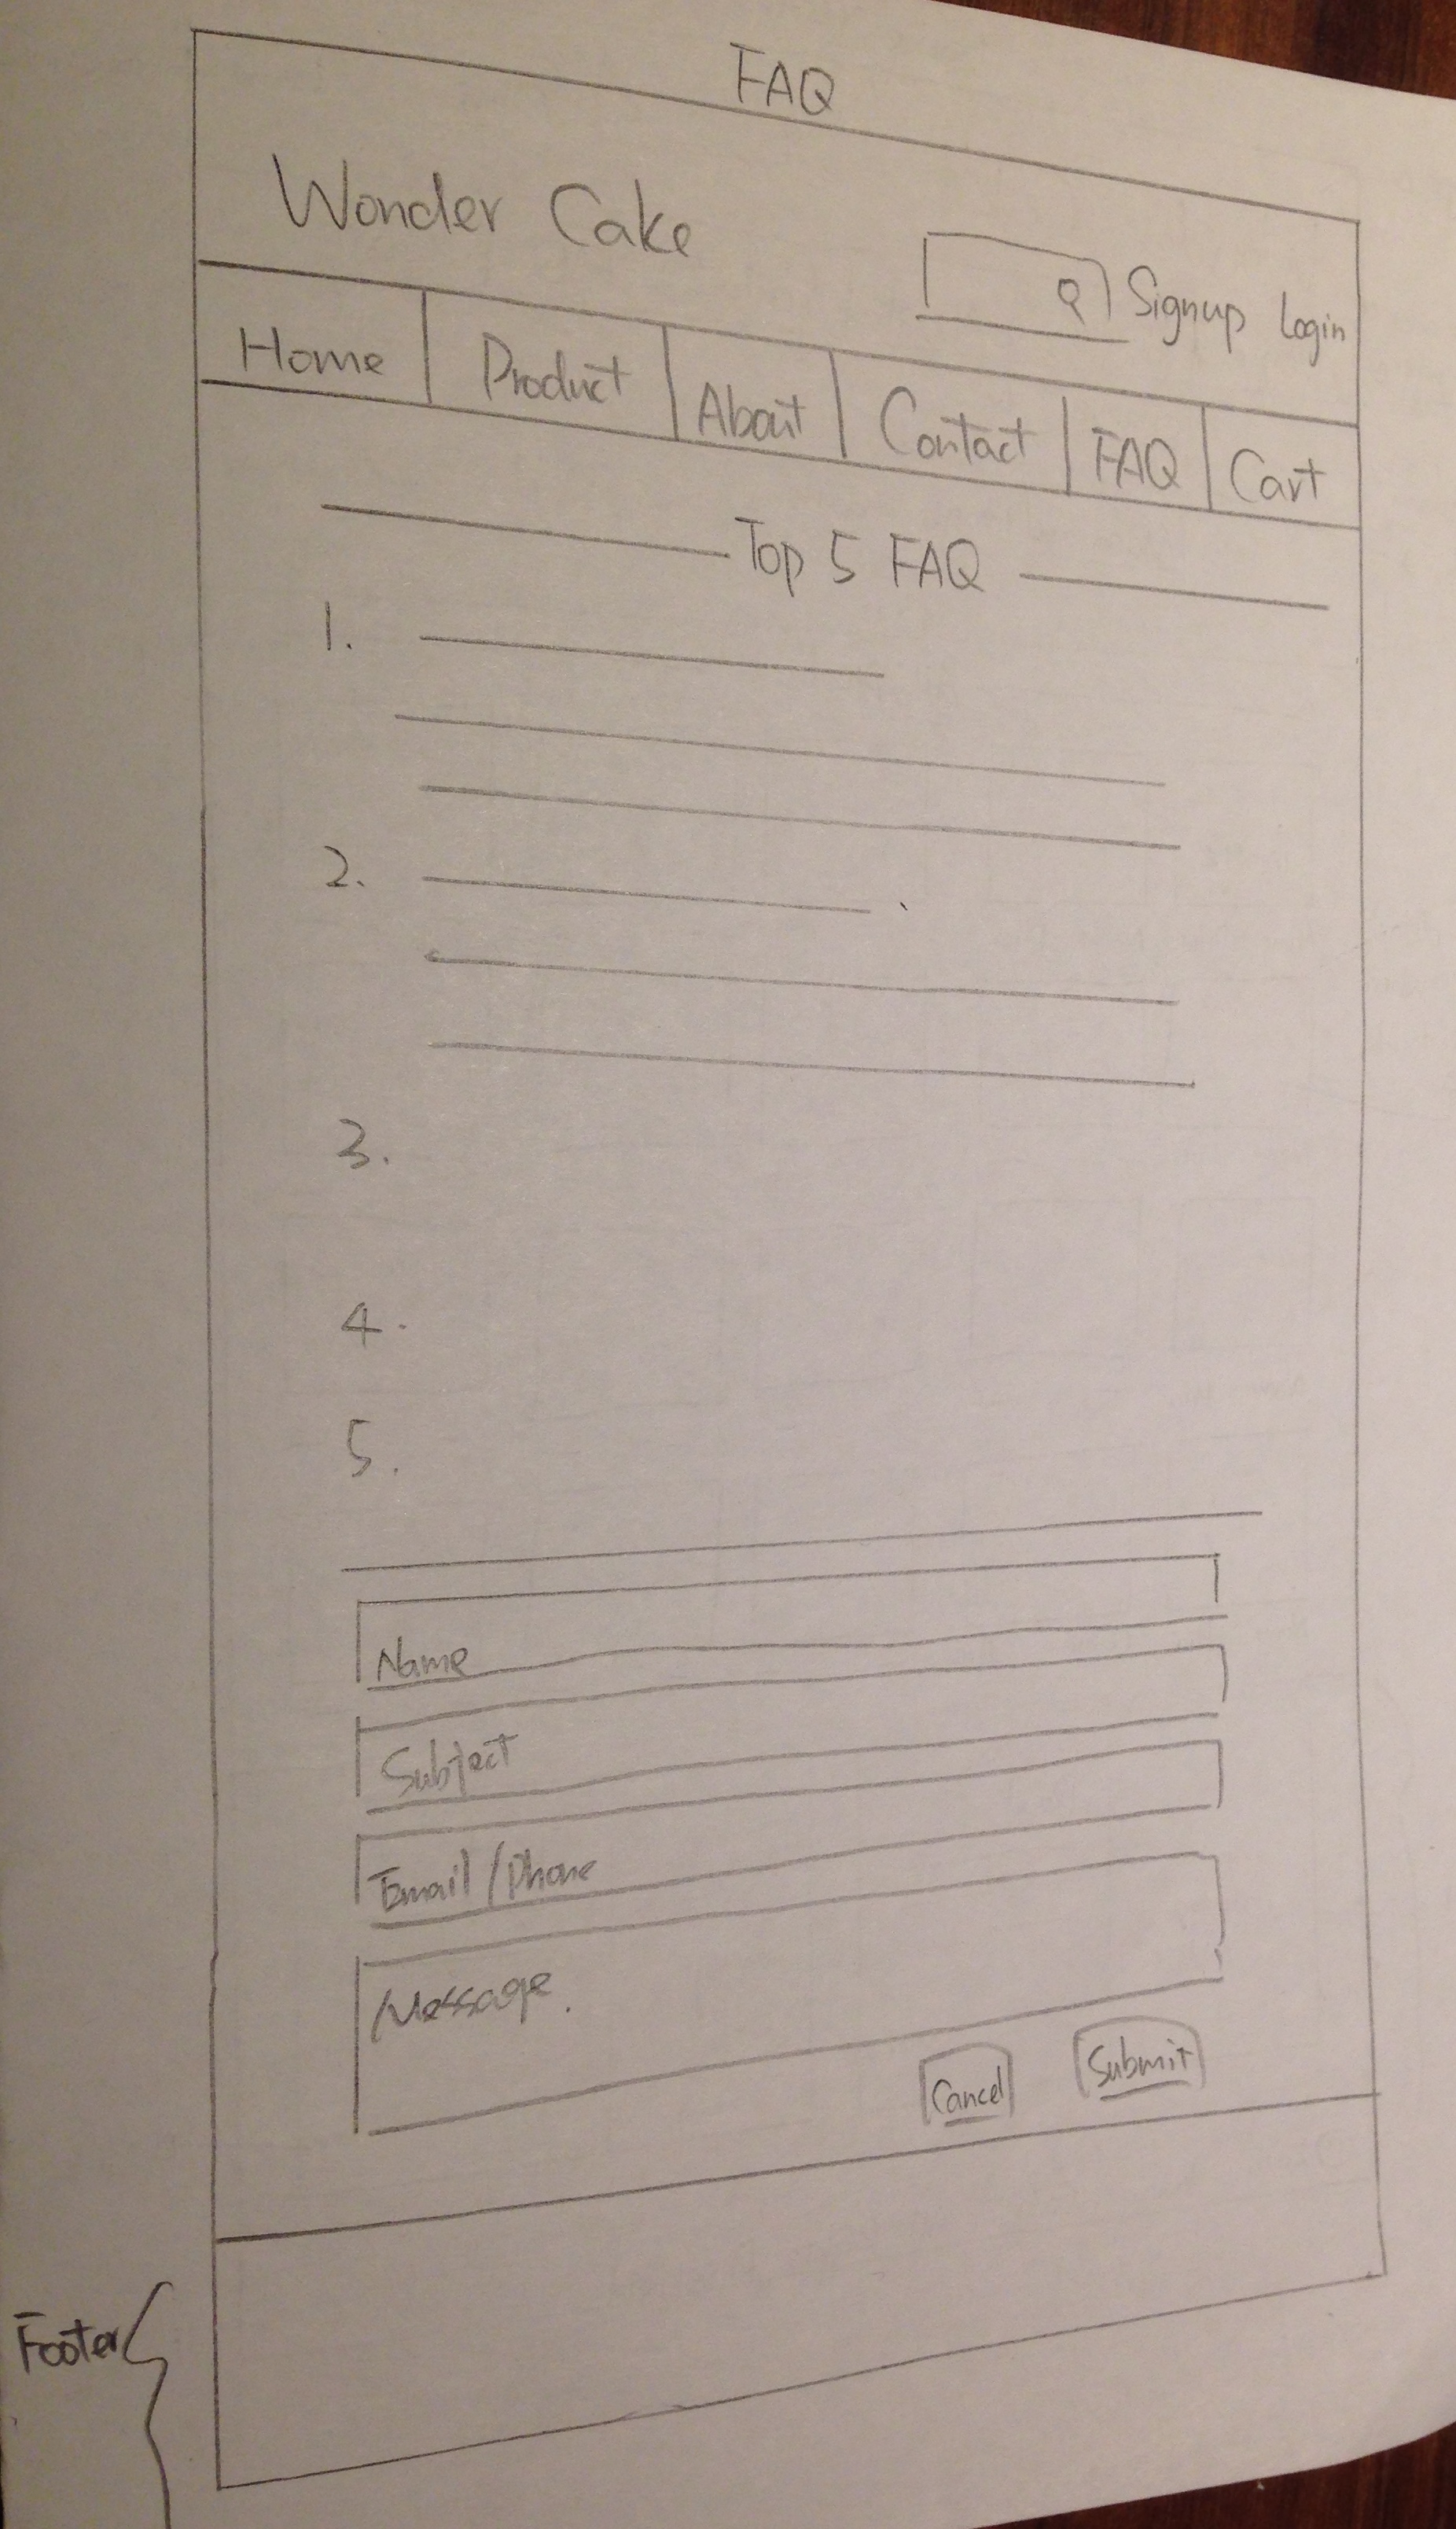 FAQ
Wonder Cake
Signup Login
Home Product About Contact FAQ Cart
Top 5 FAQ
1.
2.
3.
4.
5.
Name
Subject
Email/Phone
Message.
Cancel Submit
Footer